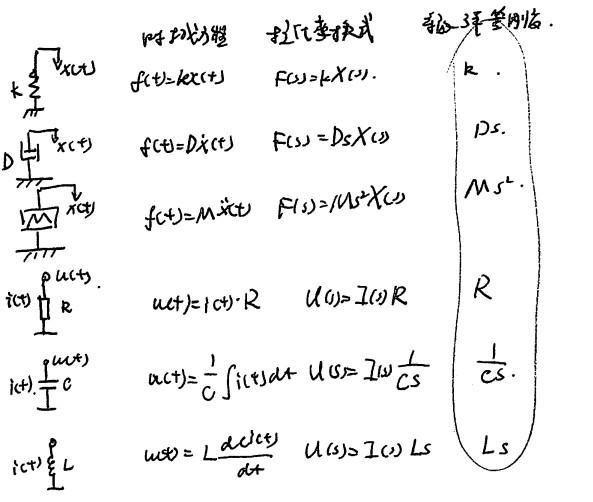 时域方程 拉氏变换式
k x(t) f(t)=kx(t) F(s)=kX(s). k.
D x(t) f(t)=Dẋ(t) F(s)=DsX(s) Ds.
M x(t) f(t)=Mẍ(t) F(s)=Ms²X(s) Ms².
u(t) i(t) R u(t)=i(t)·R U(s)=I(s)R R
u(t) i(t) C u(t)=1/C ∫i(t)dt U(s)=I(s) 1/Cs 1/Cs.
i(t) L u(t)=L di(t)/dt U(s)=I(s) Ls Ls